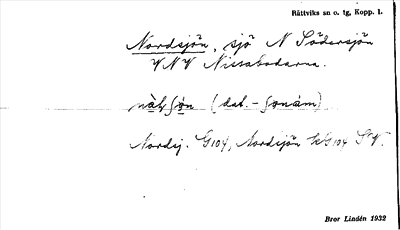 Rättviks sn o. tg, Kopp. l.
Nordsjön, sjö N Södersjön
VNV Nissabodarna.
(dat. - ʃonám)
Nordsj. G104, Nordsjön G104
Bror Lindén 1932